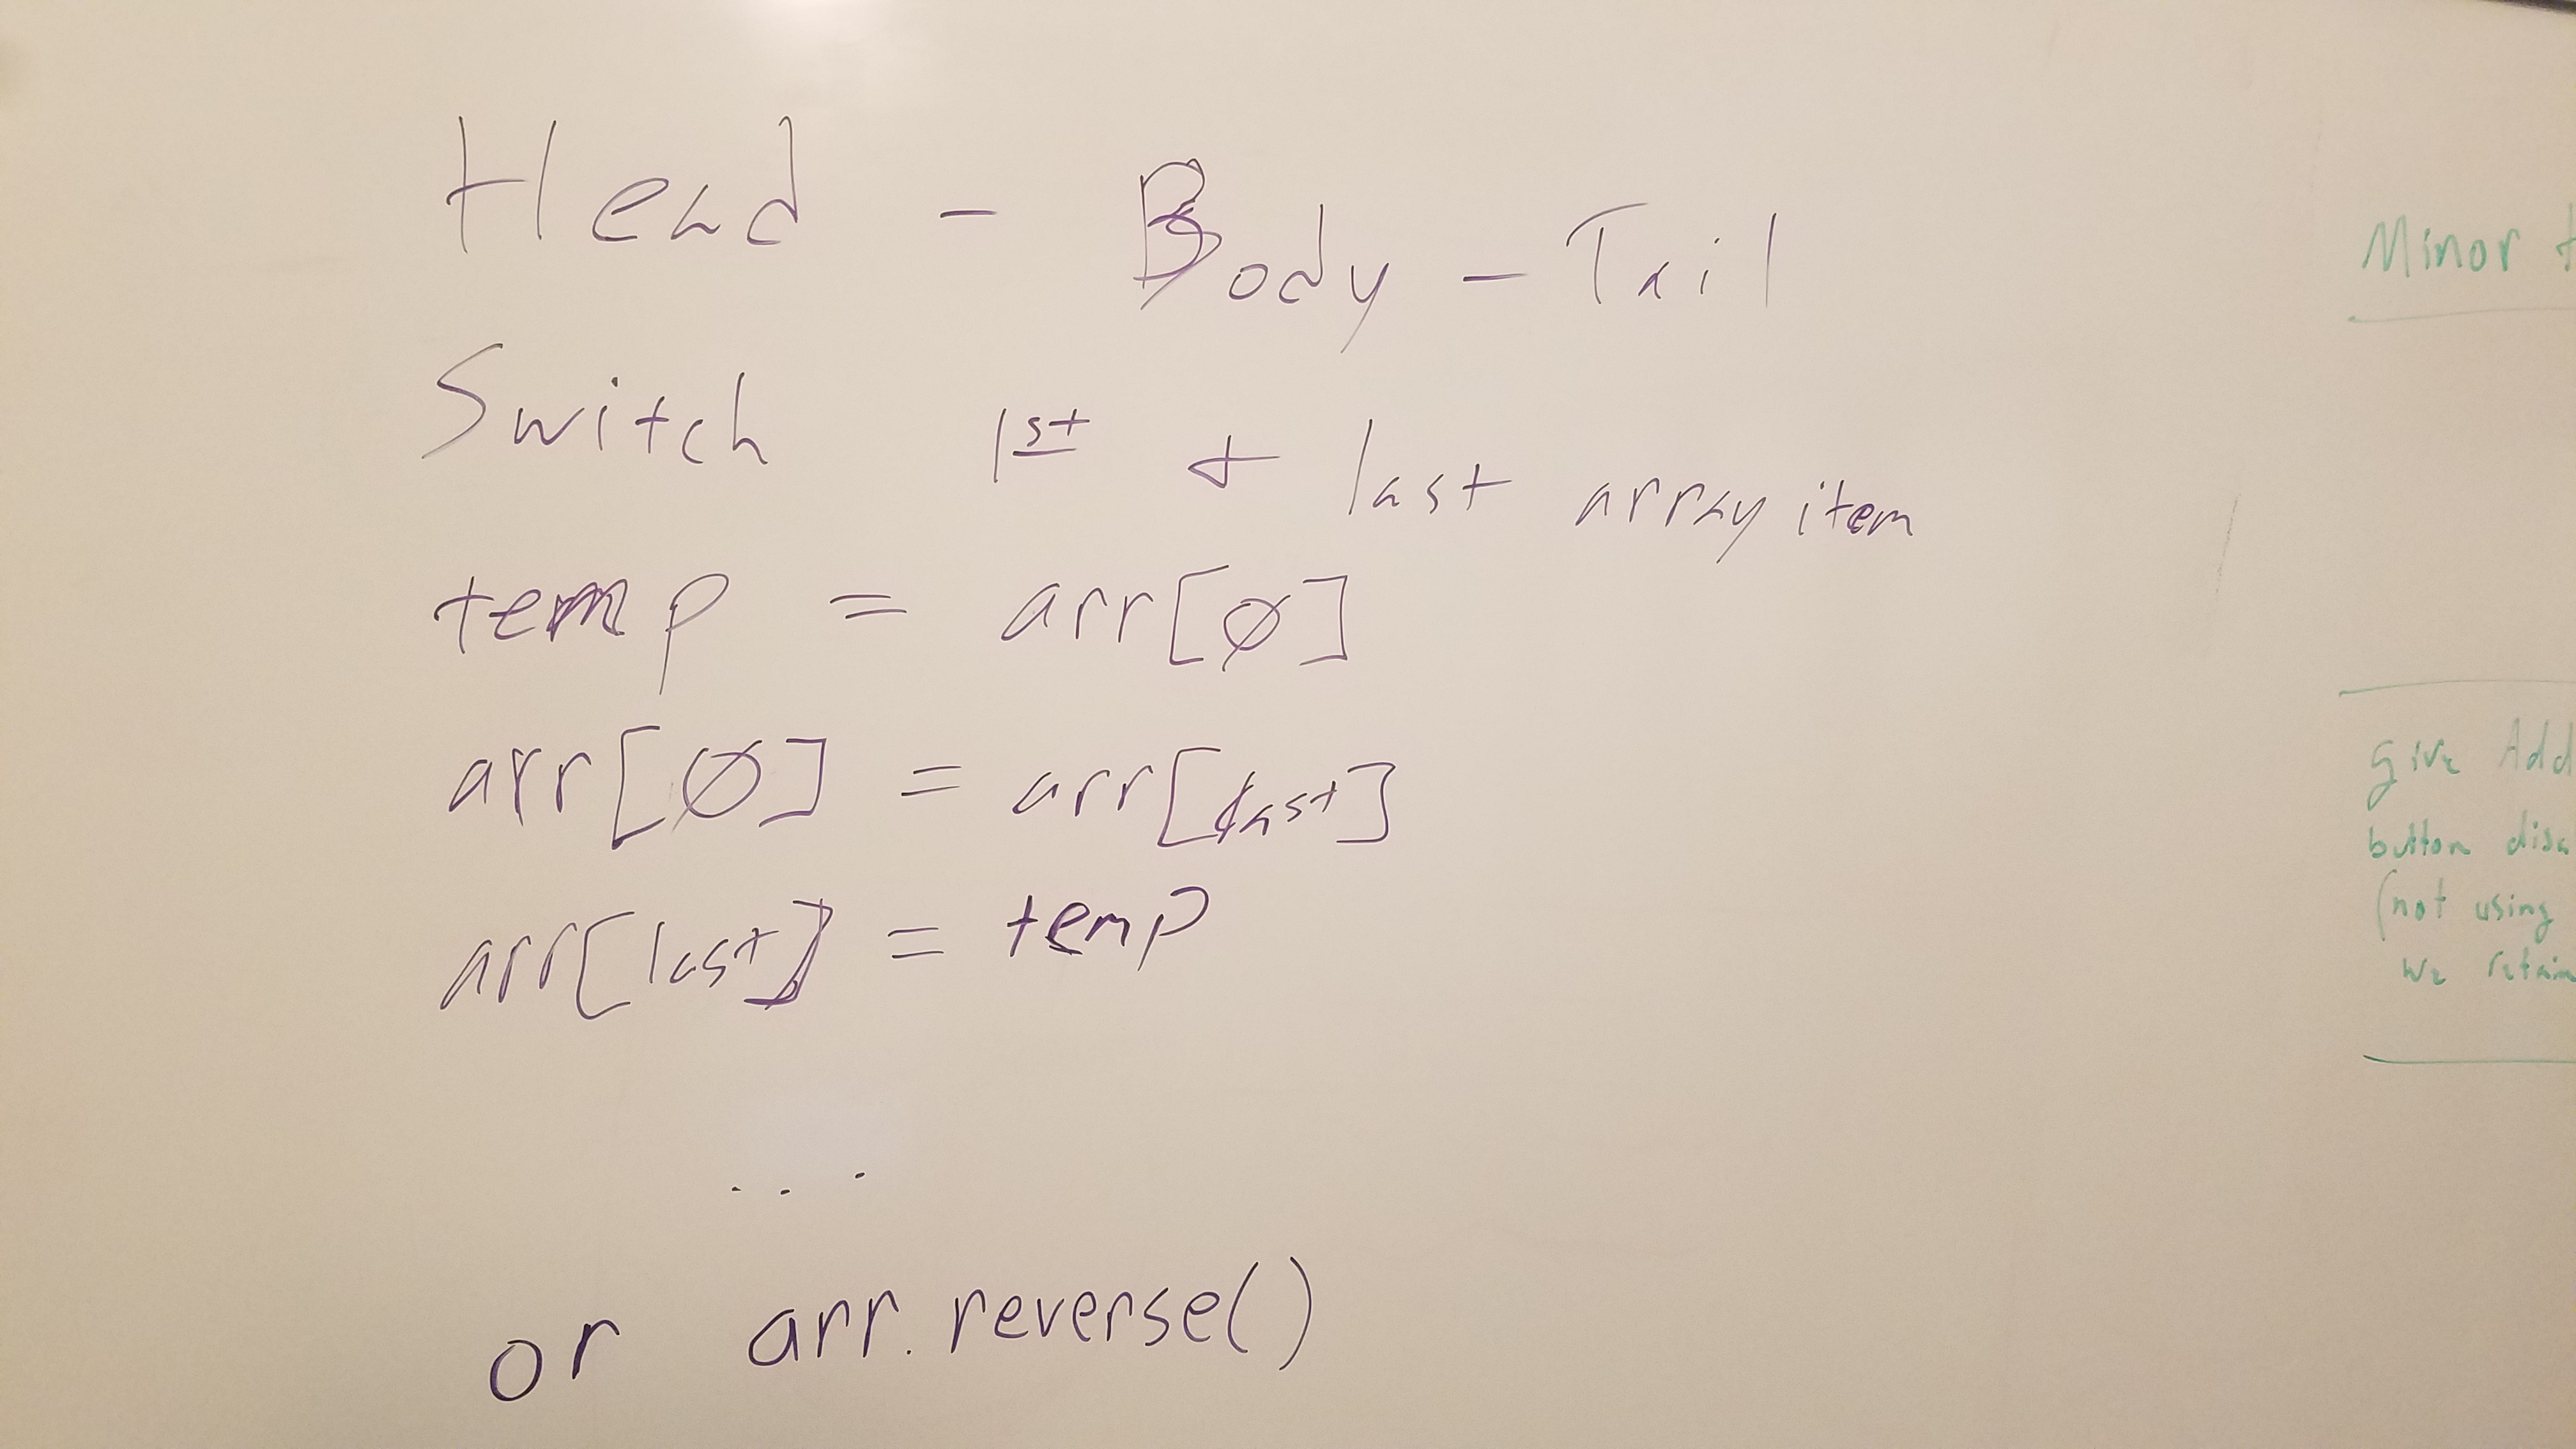 Head - Body - Tail
Switch 1st + last array item
temp = arr[Ø]
arr[Ø] = arr[last]
arr[last] = temp
...
or arr.reverse()
Minor
give Add
button
(not using
we retain